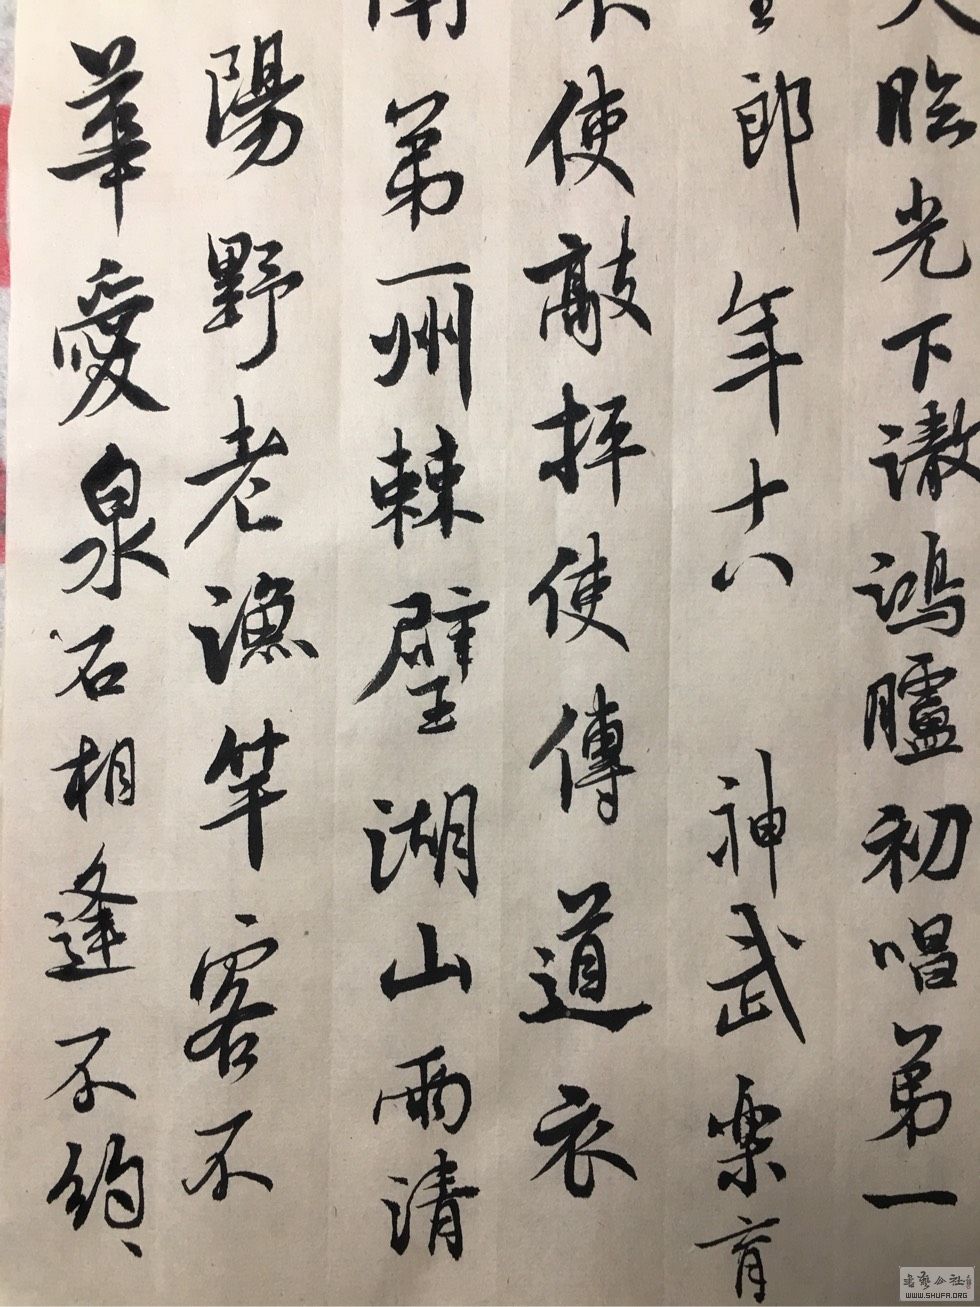 臨光下謸鴻臚初唱第一
郎年十八神武樂育
使敲抨使傳道衣
第一州棘璧湖山兩清
陽野老漁竿客不
華愛泉石相逢不約
書藝公社
WWW.SHUFA.ORG